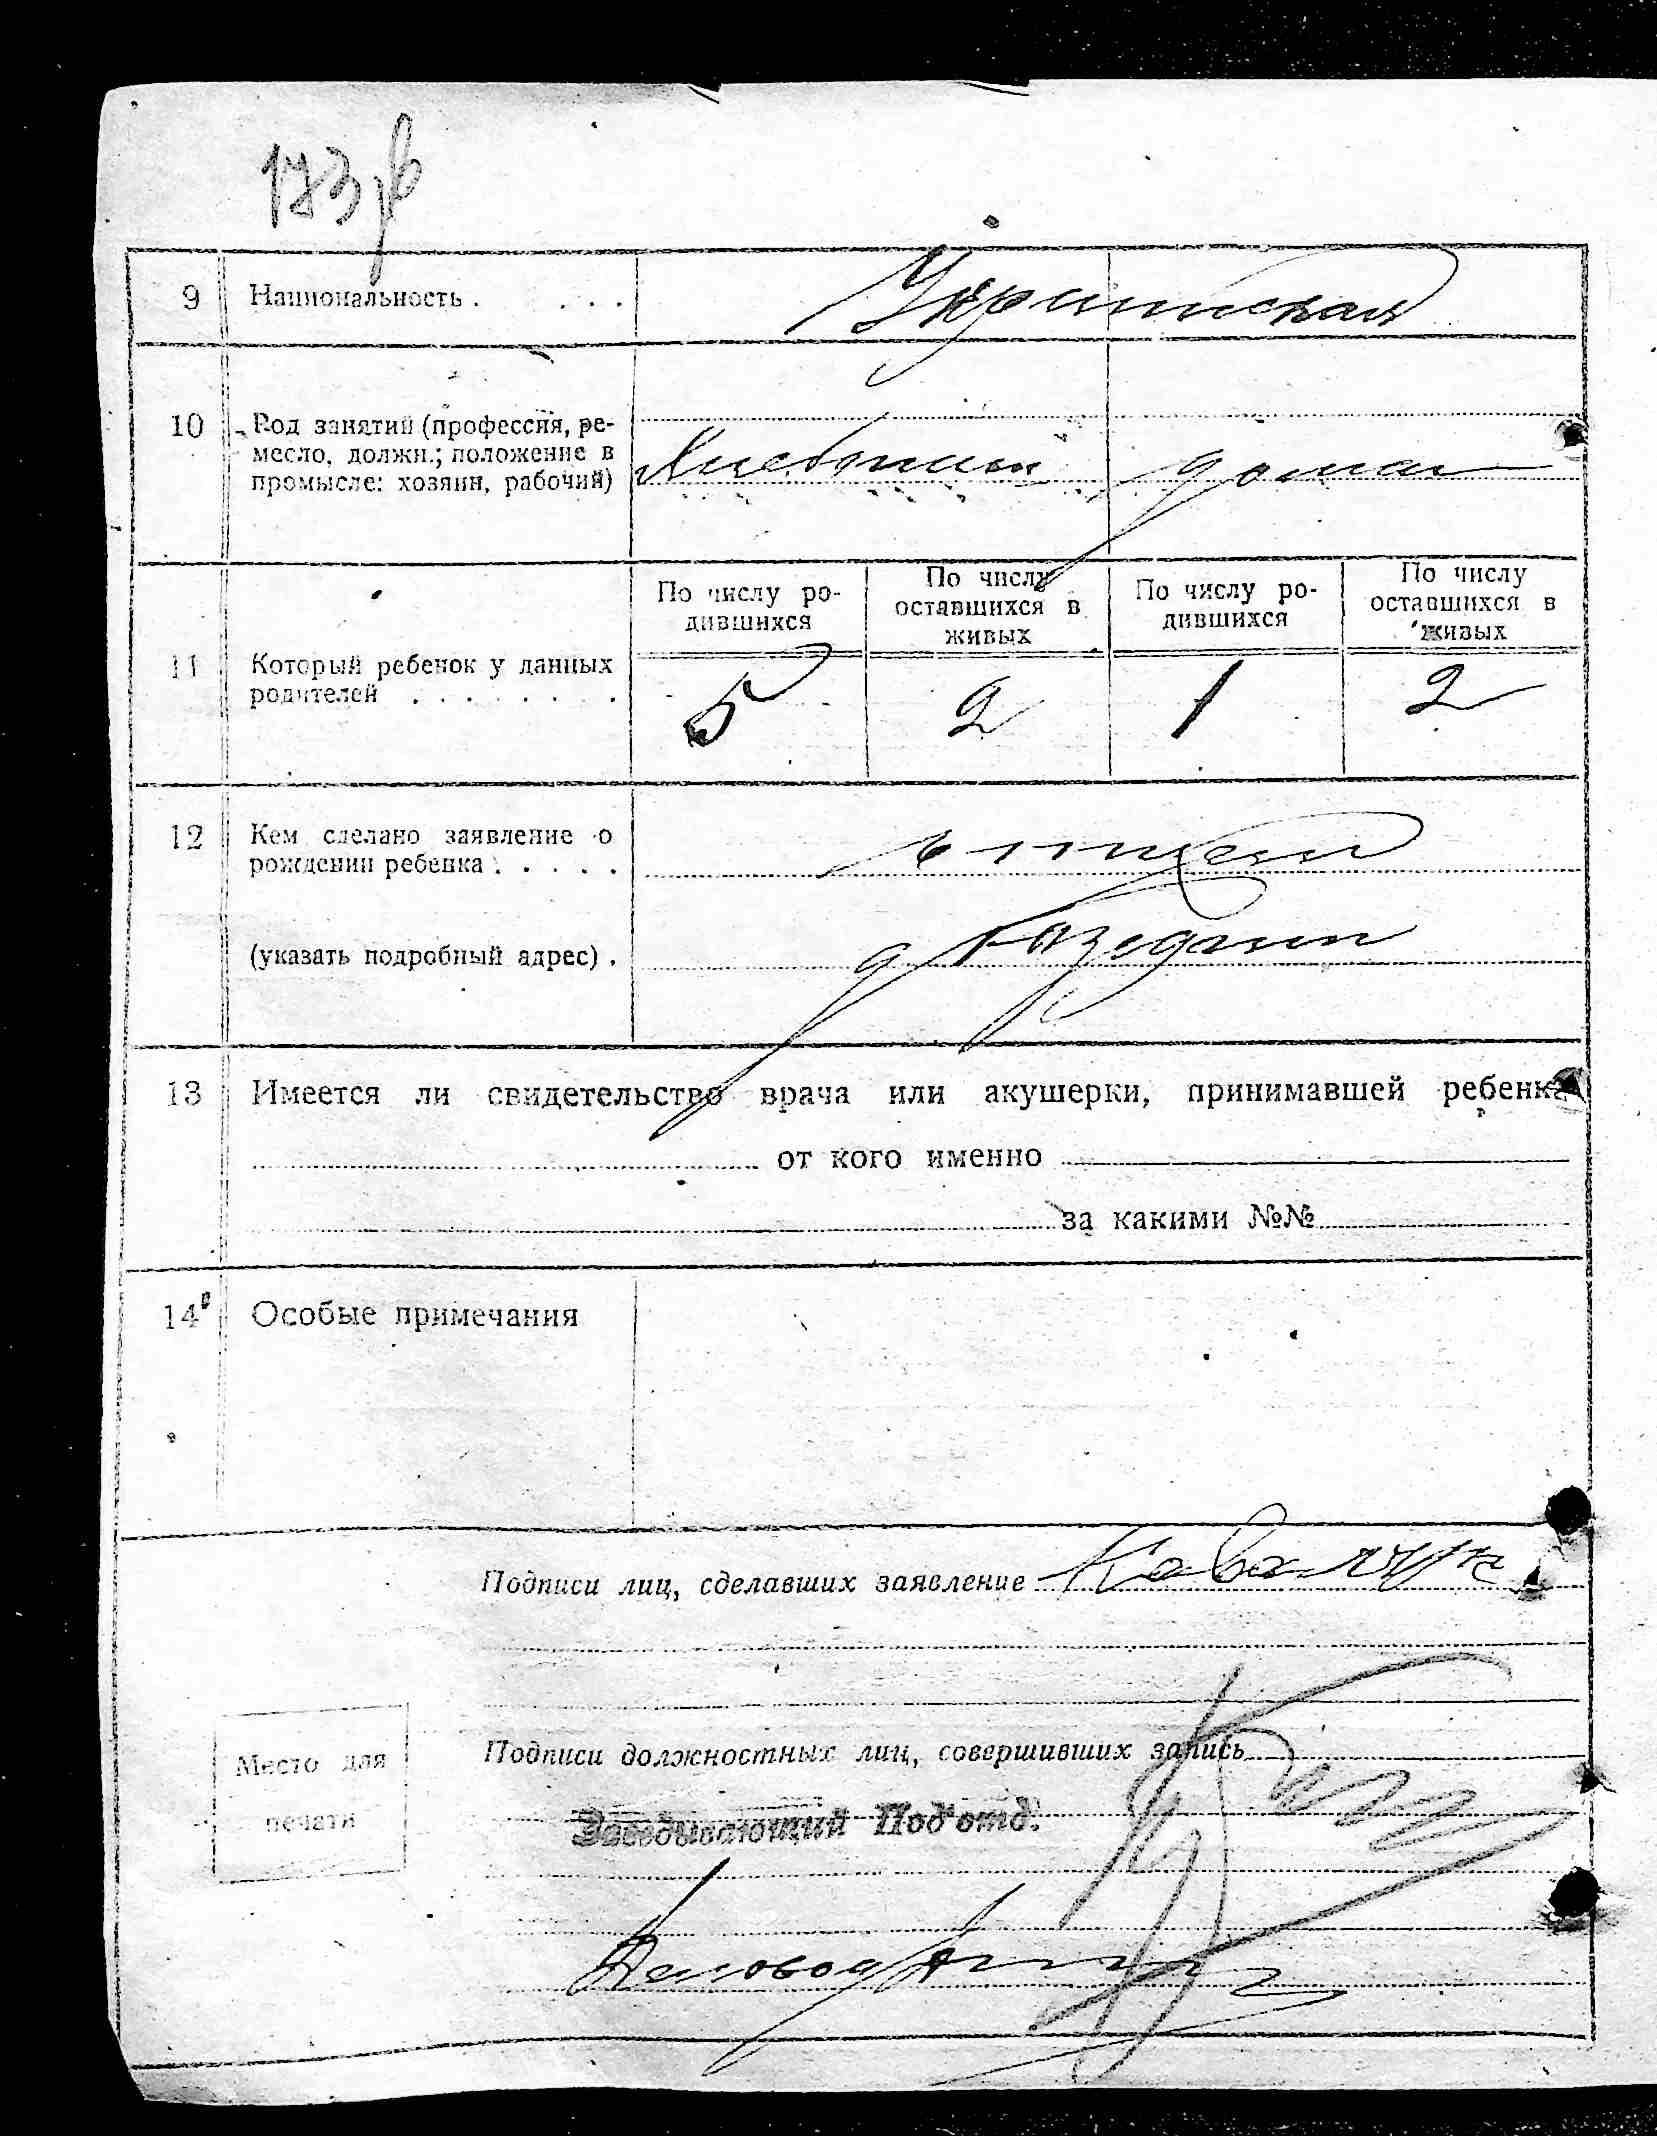 173
9 Национальность . . . .
Украинская
10 Род занятий (профессия, ре-
месло, должн.; положение в
промысле: хозяин, рабочий)
дома
По числу ро-
дившихся
По числу
оставшихся в
живых
По числу ро-
дившихся
По числу
оставшихся в
живых
11 Который ребенок у данных
родителей . . . . . . . .
5 2 1 2
12 Кем сделано заявление о
рождении ребенка . . . . .
отцем
(указать подробный адрес) .
д
13 Имеется ли свидетельство врача или акушерки, принимавшей ребенка
от кого именно
за какими №№
14 Особые примечания
Подписи лиц, сделавших заявление Ковальчук
Подписи должностных лиц, совершивших запись
Место для
печати
Заведывающий Под'отд.
Деловод